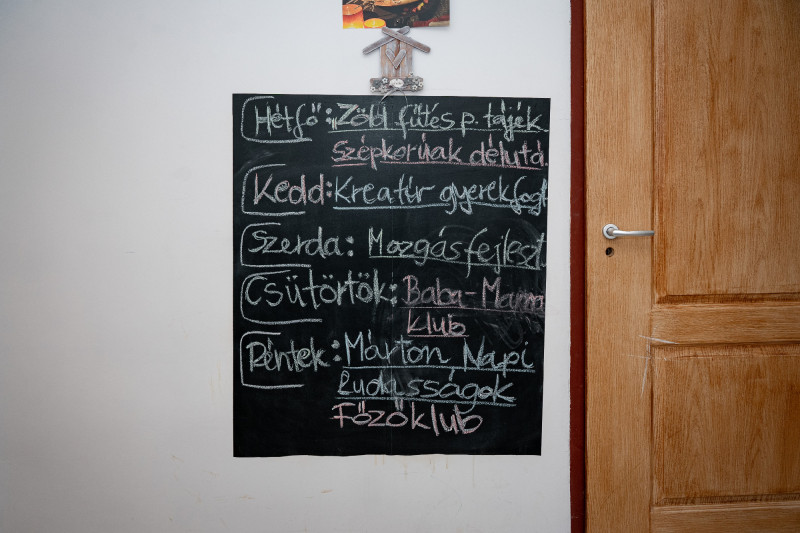 Hétfő: Zöld fűtés p. tájék.
Szépkorúak délutá
Kedd: Kreatív gyerekfogl
Szerda: Mozgásfejleszt
Csütörtök: Baba-Mama
klub
Péntek: Márton Napi
Ludasságok
Főzőklub